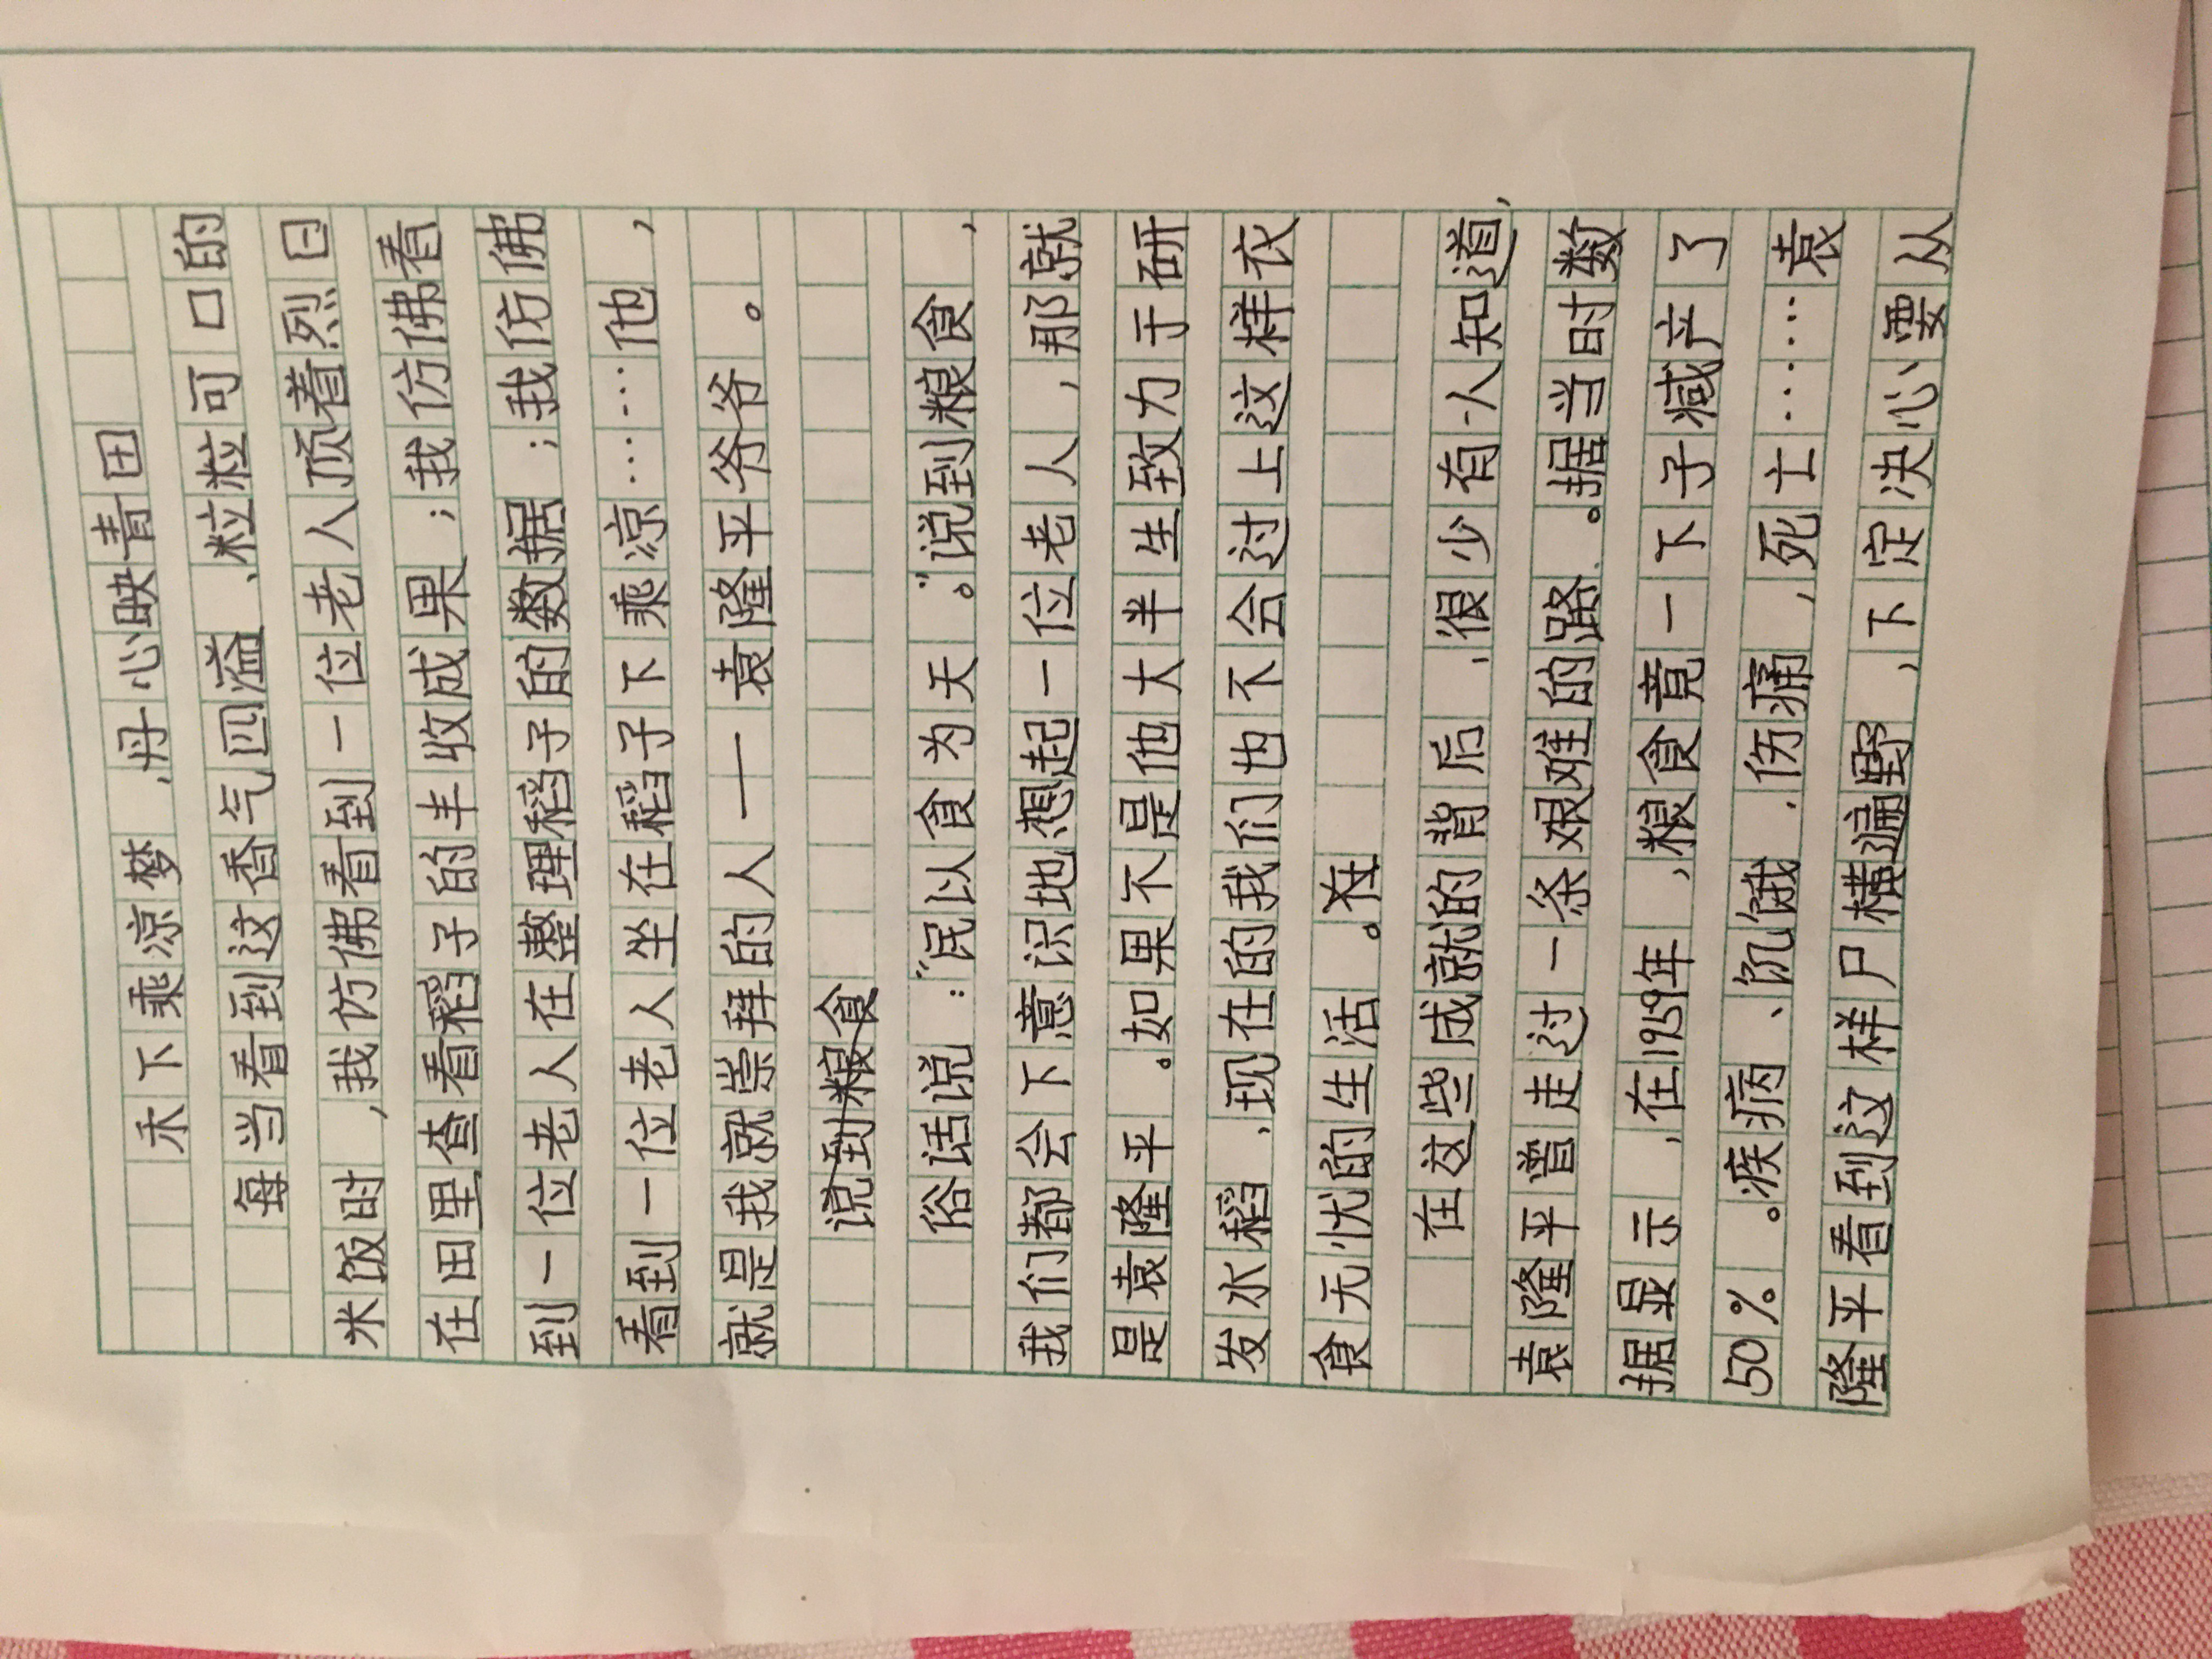 禾下乘凉梦，丹心映青田
每当看到这香气四溢、粒粒可口的
米饭时，我仿佛看到一位老人顶着烈日
在田里查看稻子的丰收成果；我仿佛看
到一位老人在整理稻子的数据；我仿佛
看到一位老人坐在稻子下乘凉……他，
就是我就崇拜的人——袁隆平爷爷。
说到粮食
俗话说：“民以食为天。”说到粮食，
我们都会下意识地想起一位老人，那就
是袁隆平。如果不是他大半生致力于研
发水稻，现在的我们也不会过上这样衣
食无忧的生活。在
在这些成就的背后，很少有人知道，
袁隆平曾走过一条艰难的路。据当时数
据显示，在1959年，粮食竟一下子减产了
50%。疾病、饥饿、伤痛，死亡……袁
隆平看到这样尸横遍野，下定决心要从